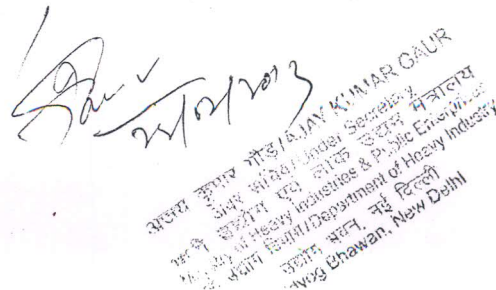 अजय कुमार गौड़/AJAY KUMAR GAUR
अवर सचिव/Under Secretary
भारी उद्योग एवं लोक उद्यम मंत्रालय
of Heavy Industries & Public Enterprises
उद्योग विभाग/Department of Heavy Industry
उद्योग भवन, नई दिल्ली
Bhawan, New Delhi